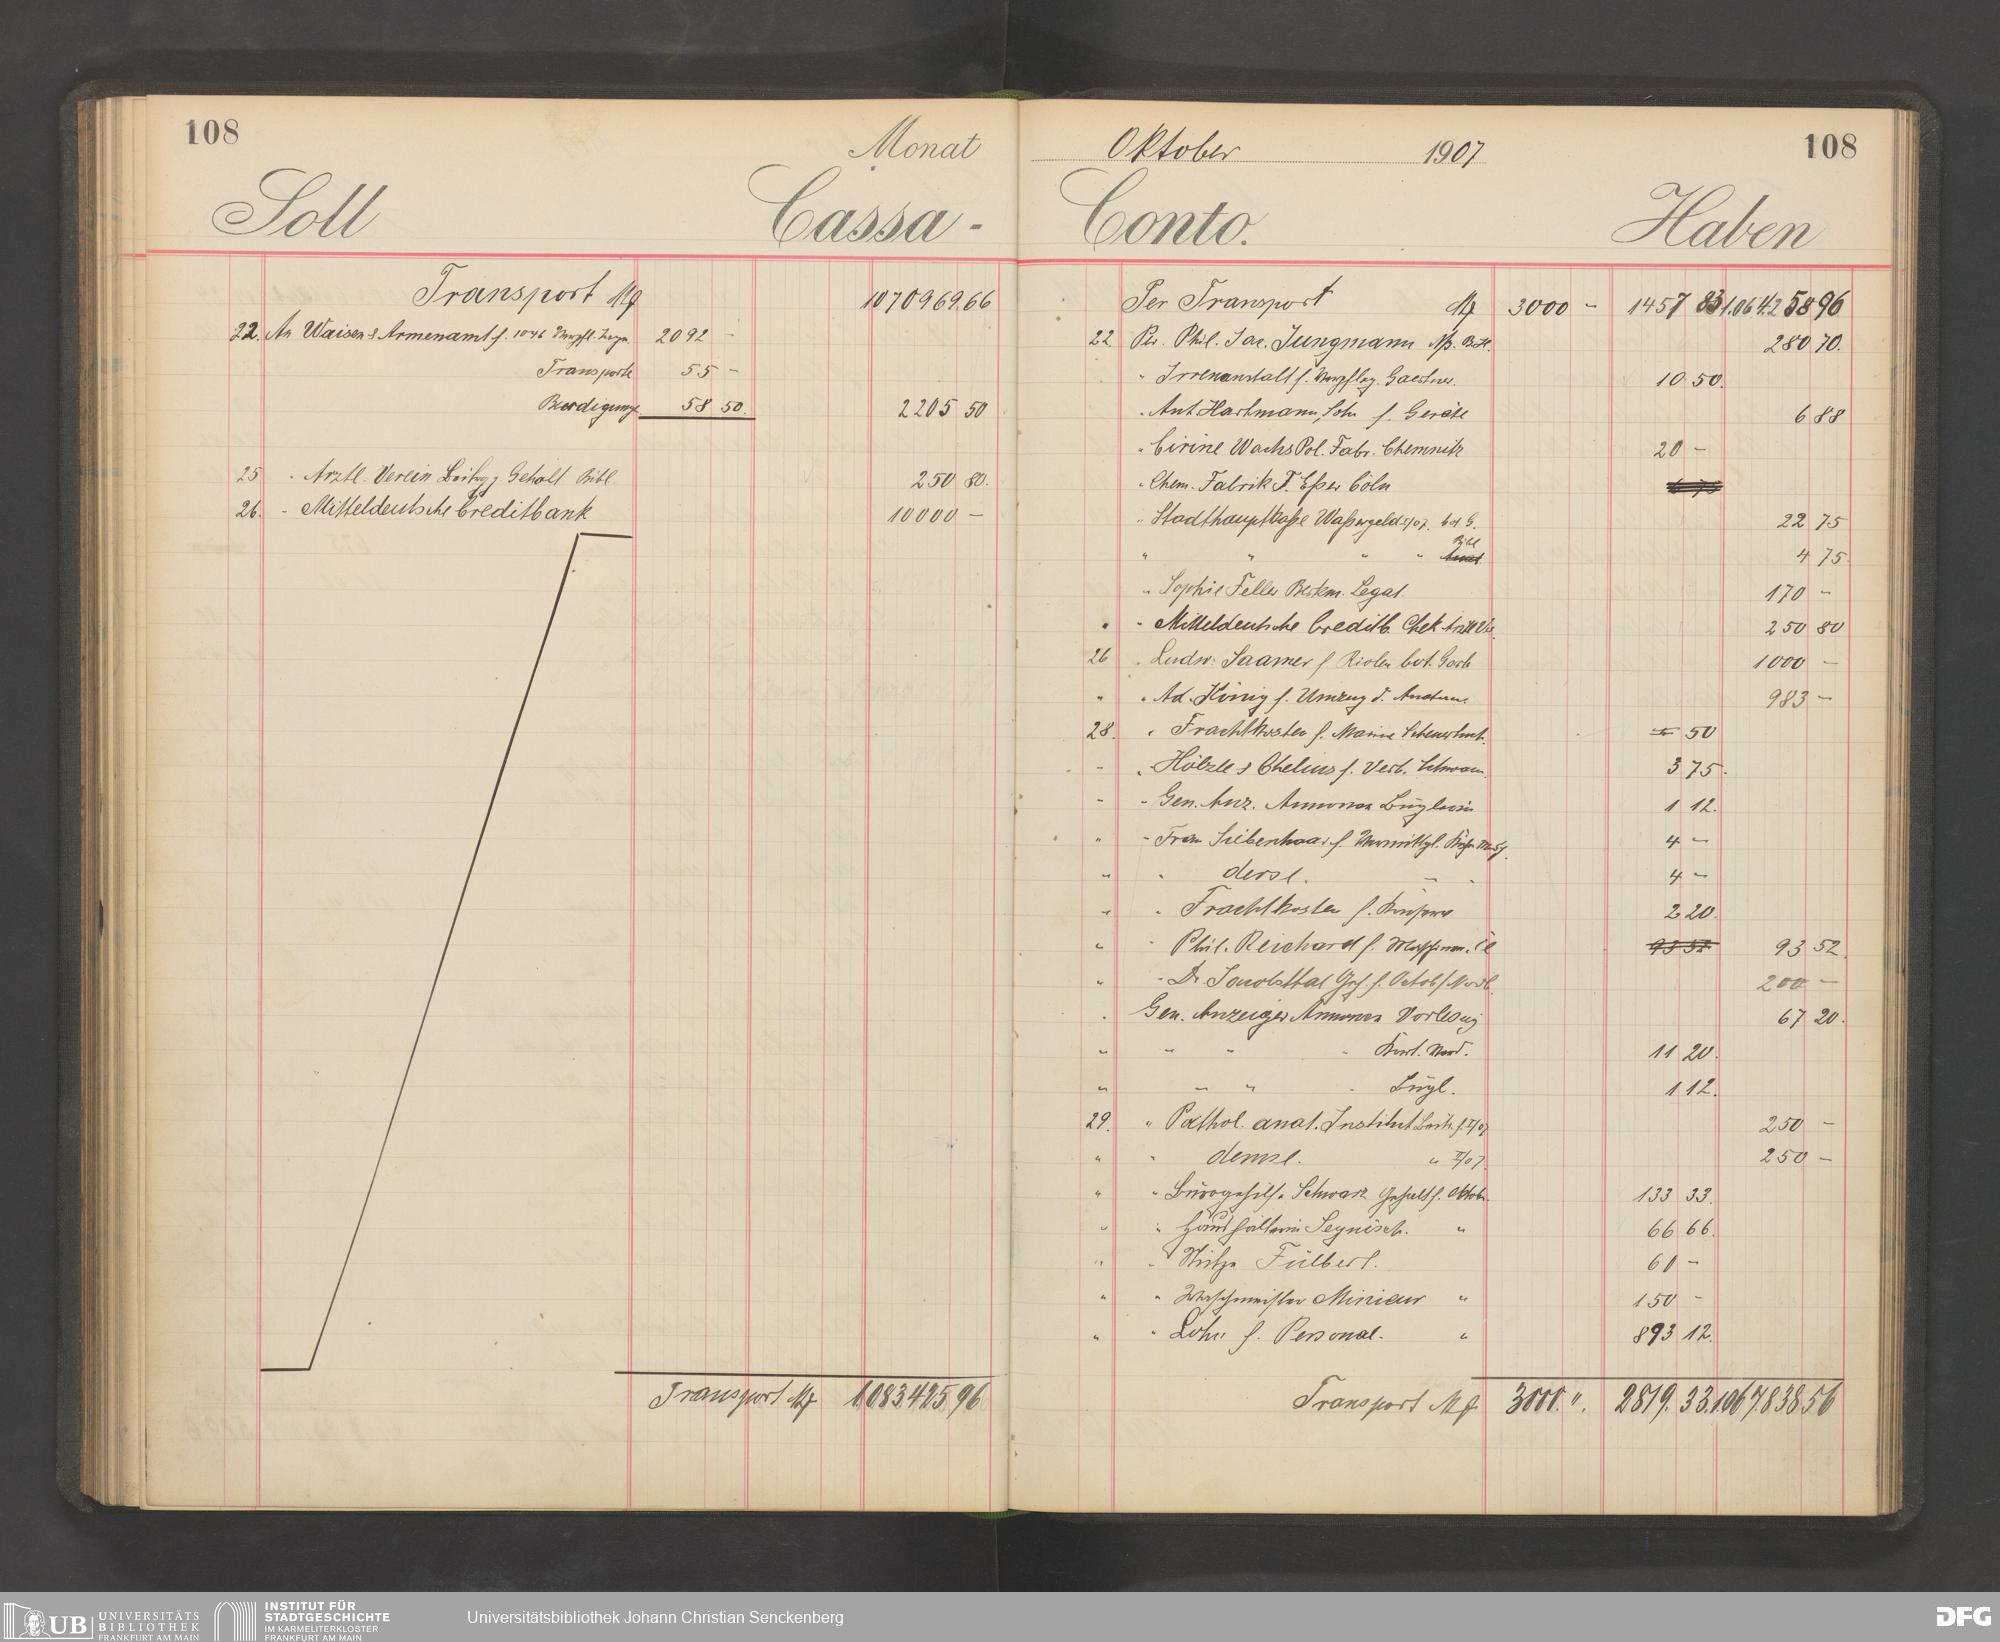 108
Monat
Soll Cassa-
Transport M 1070969.66
22. An Waisen & Armenamt f. 1046 2092 -
Transporte 55 -
Beerdigung 58 50. 2205 50
25 " Arztl. Verein Gehalt Bibl. 250 80.
26. " Mitteldeutsche Creditbank 10000 -
Transport M 1.083.425,96
Oktober 1907 108
Conto. Haben
Per Transport M 3000 - 1457 83 1.064.258 96
22 Per. Phil. Jac. Jungmann 280 70.
" Irrenanstalt f. Verpfleg. Gaertner. 10 50.
" Ant. Hartmann, Sohn f. Geräte 6 88
" Cirine Wachs Pol. Fabr. Chemnitz 20 -
" Chem. Fabrik F. Eßer Cöln
" Stadthauptkaße Waßergeld /07. bot G. 22 75
" " " " Bibl 4 75
" Sophie Feller Legat. 170 -
" " Mitteldeutsche Creditb. Chek 250 80
26 " Ludw. Saamer f bot. Gart 1000 -
" " Ad. König f. Umzug d. 983 -
28. " Frachtkosten f. 50
" " Hölzle & Chelius f. Verb. 3 75.
" " Gen. Anz. Annonce Büglerin 1 12.
" " Frau Siebenhaar f. 4 -
" " dersl. " " 4 -
" " Frachtkosten f. 2 20.
" " Phil. Reichard f. Maschinen. Öl 93 52 93 52.
" " Dr. f. Octob/ 200 -
" Gen. Anzeiger Annonce Vorlesung 67 20.
" " " " 11 20.
" " " " Bügl. 1 12.
29. " Pathol. anat. Institut 250 -
" " demsl. " II/07. 250 -
" " Bürogehilfe Schwarz Gehalt f. Oktob. 133 33.
" " Haushälterin " 66 66.
" " Stütze Fülbert. 60 -
" " Waschmeister " 150 -
" " Lohn f. Personal. " 893 12.
Transport M 3000. ". 2819. 33. 1.067.838 56
UB UNIVERSITÄTS
BIBLIOTHEK
FRANKFURT AM MAIN
INSTITUT FÜR
STADTGESCHICHTE
IM KARMELITERKLOSTER
FRANKFURT AM MAIN
Universitätsbibliothek Johann Christian Senckenberg
DFG